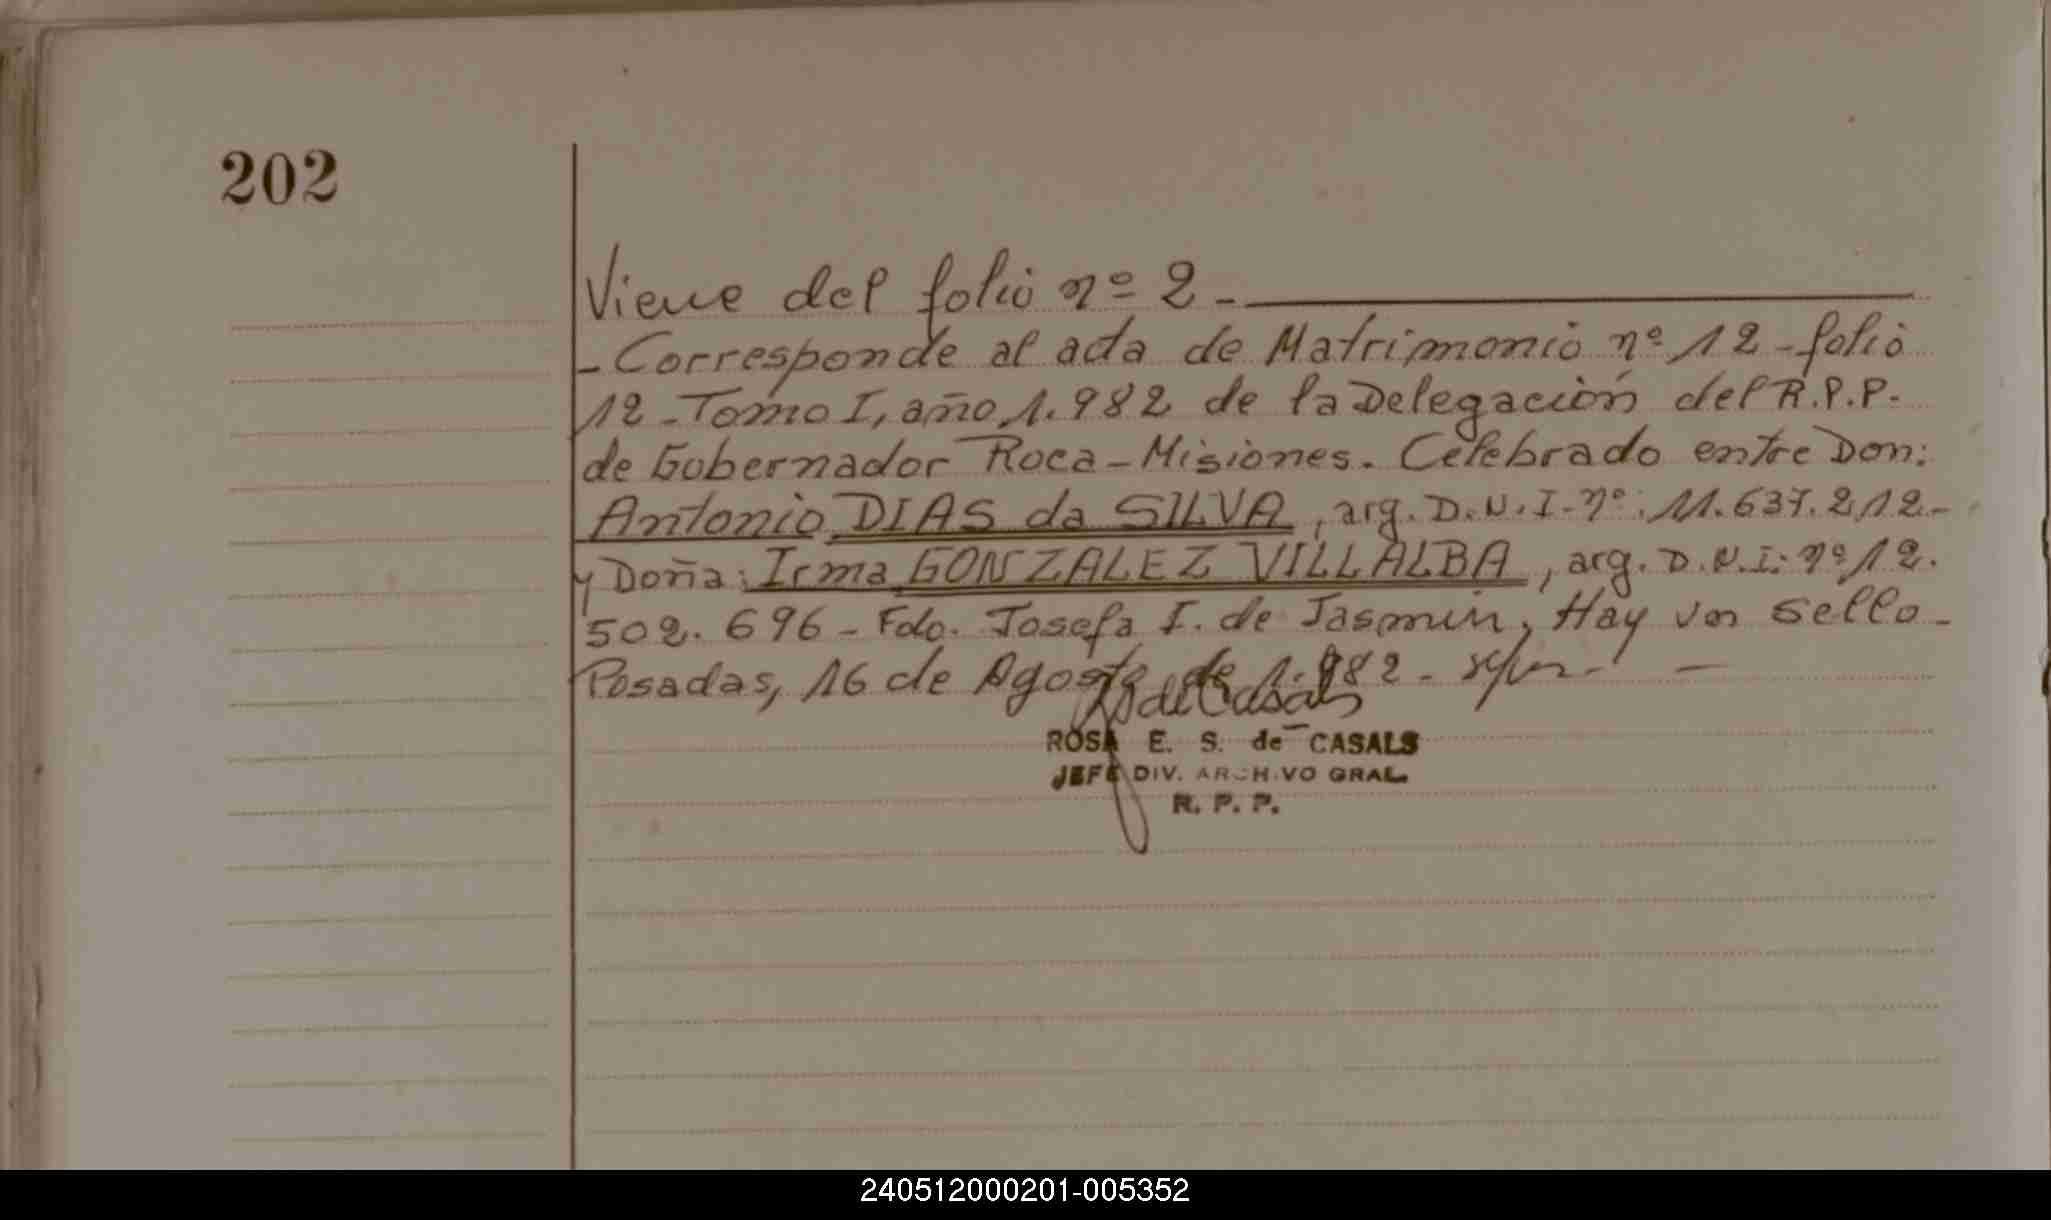 202
Viene del folio nº 2 -
- Corresponde al acta de Matrimonio nº 12 - folio
12 - Tomo I, año 1.982 de la Delegación del R.P.P.
de Gobernador Roca - Misiones. Celebrado entre Don:
Antonio DIAS da SILVA, arg. D.N.I. nº: 11.637.212 -
y Doña: Irma GONZALEZ VILLALBA, arg. D.N.I: nº 12.
502.696 - Fdo. Josefa I. de Jasmin, Hay un sello -
Posadas, 16 de Agosto de 1.982 -
de Casals
ROSA E. S. de CASALS
JEFE DIV. ARCHIVO GRAL.
R. P. P.
240512000201-005352